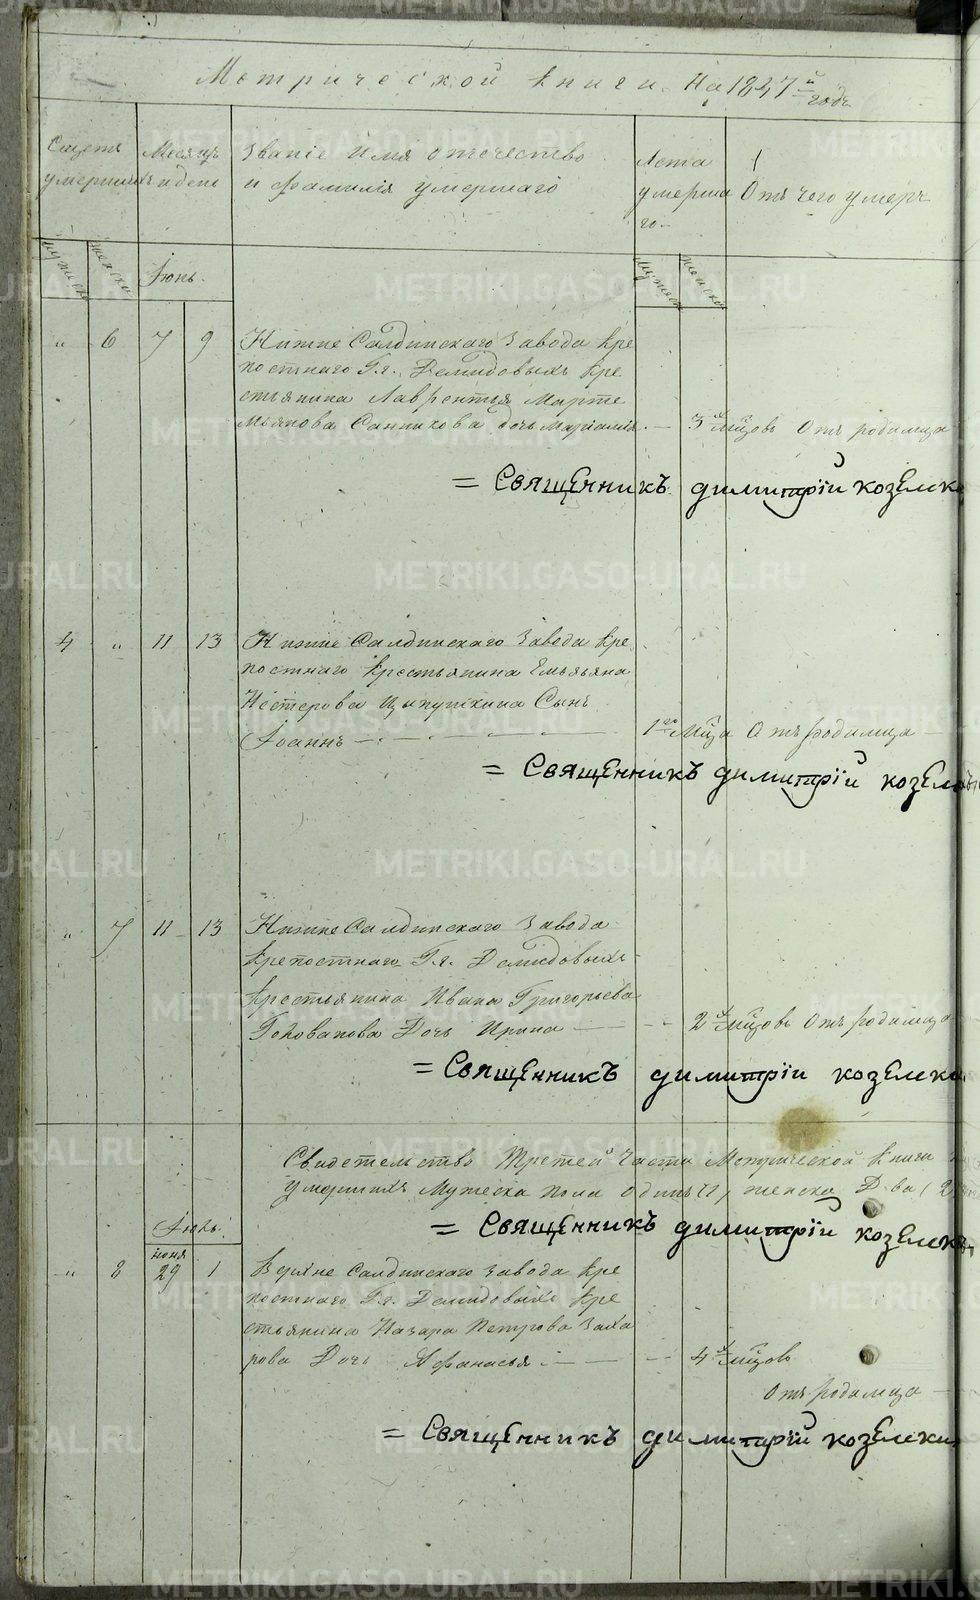 Метрической книги На 1847й годъ
Счетъ умершихъ
Месяцъ и день
Званіе имя отечество и фамилія умершаго
Лета умершаго
Отъ чего умеръ
мужеска
женска
Іюнь.
мужеска
женска
" 6 7 9 Нижне Салдинскаго Завода кре
постнаго Гг. Демидовыхъ кре
стьянина Лаврентья Марте
мьянова Санникова дочь Маріамія. — 3 мцовъ Отъ родимца
= Священникъ Димитрій Козелски
4 " 11 13 Нижне Салдинскаго Завода кре
постнаго крестьянина Емельяна
Нестерова Цыпушкина Сынъ
Іоаннъ — 1го Мца Отъ родимца —
= Священникъ Димитрій Козелск
" 7 11 13 Нижне Салдинскаго Завода
крепостнаго Гг. Демидовыхъ
крестьянина Ивана Григорьева
Голованова Дочь Ирина — 2 мцовъ Отъ родимца
= Священникъ Димитрій Козелски
Свидетельство Третей части Метрической книги
умершихъ Мужеска пола одинъ (1) женска Два (2
= Священникъ Димитрій Козелск
Іюль.
июня
" 8 29 1 Верхне Салдинскаго Завода кре
постнаго Гг. Демидовыхъ кре
стьянина Назара Петрова Заха
рова Дочь Афанасья — 4 мцовъ
Отъ родимца —
= Священникъ Димитрій Козелски
METRIKI.GASO-URAL.RU